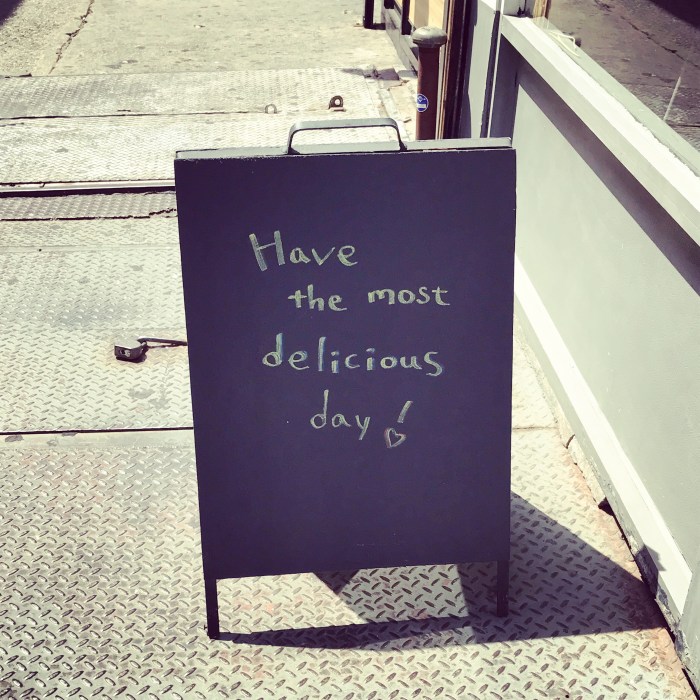 Have
the most
delicious
day!